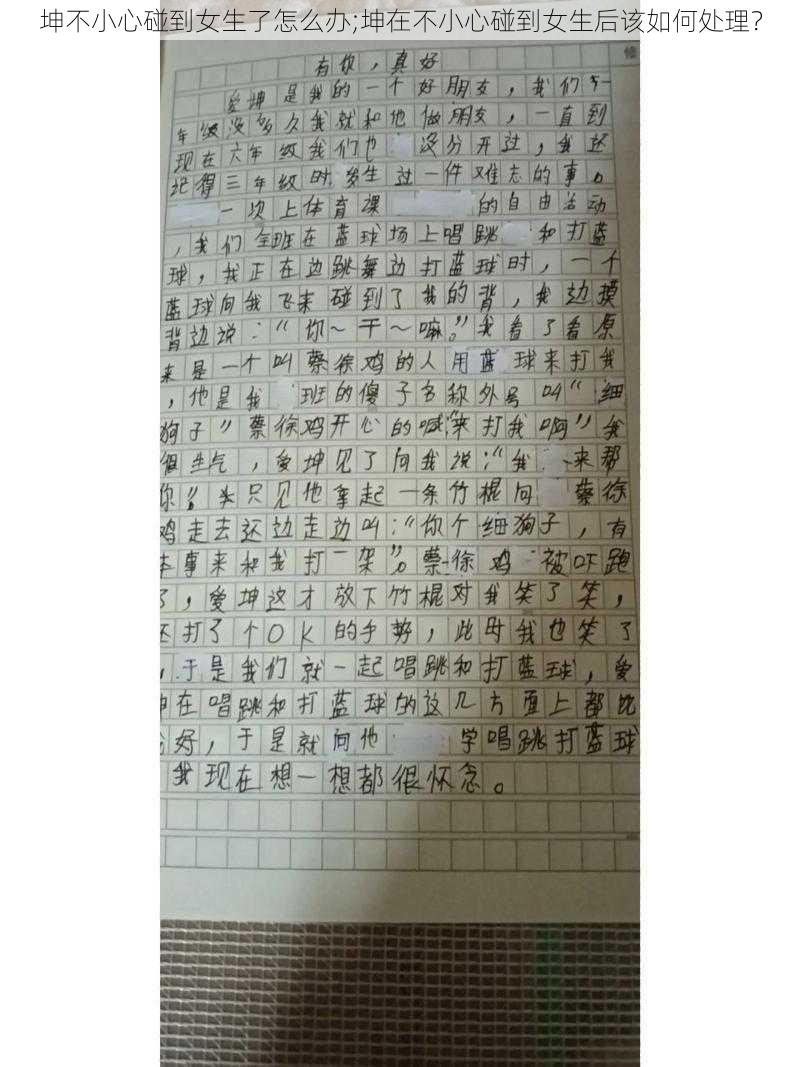 坤不小心碰到女生了怎么办;坤在不小心碰到女生后该如何处理?
有你，真好
爱坤是我的一个好朋友，我们一
年级没多久我就和他做朋友，一直到
现在六年级我们也没分开过，我还
记得三年级时发生过一件难忘的事。
一次上体育课的自由活动
，我们全班在蓝球场上唱跳和打蓝
球，我正在边跳舞边打蓝球时，一个
蓝球向我飞来碰到了我的背，我边摸
背边说：“你～干～嘛。”我看了看原
来是一个叫蔡徐鸡的人用蓝球来打我
，他是我班的傻子名称外号叫“细
狗子”蔡徐鸡开心的喊“来打我啊”我
很生气，爱坤见了向我说：“我来帮
你”。只见他拿起一条竹棍向蔡徐
鸡走去还边走边叫：“你个细狗子，有
本事来和我打一架”。蔡徐鸡被吓跑
了，爱坤这才放下竹棍对我笑了笑，
还打了个OK的手势，此时我也笑了
，于是我们就一起唱跳和打蓝球，爱
坤在唱跳和打蓝球的这几方面上都比
我好，于是就向他学唱跳打蓝球
我现在想一想都很怀念。